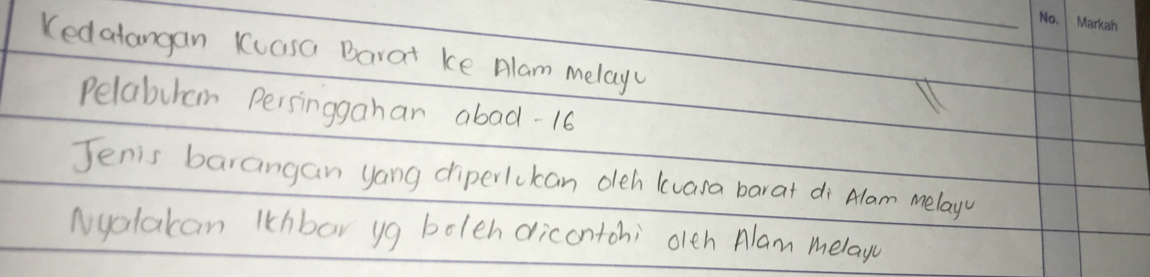 No. Markah
Kedatangan Kuasa Barat ke Alam Melayu
Pelabuhan Persinggahan abad - 16
Jenis barangan yang diperlukan oleh kuasa barat di Alam Melayu
Nyatakan Ikhbar yg boleh dicontohi oleh Alam Melayu